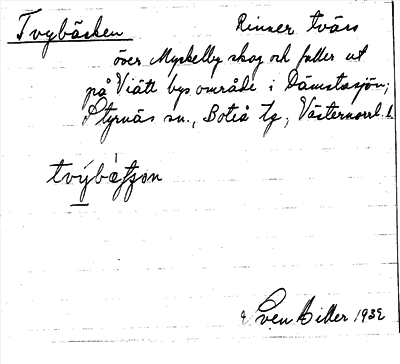 Tvybäcken Rinner tvärs
över Myckelby skog och faller ut
på Viätt bys område i Dämstasjön;
Styrnäs sn., Boteå tg, Västernorrl. l.
tvýbæ̀ҫҫon
Sven Biller 1932